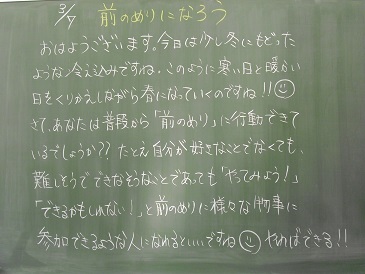 3/7 前のめりになろう
おはようございます。今日は少し冬にもどった
ような冷え込みですね。このように寒い日と暖かい
日をくりかえしながら春になっていくのですね!!
さて、あなたは普段から「前のめり」に行動できて
いるでしょうか?? たとえ自分が好きなことでなくても、
難しそうでできなそうなことであっても「やってみよう!」
「できるかもしれない!」と前のめりに様々な物事に
参加できるような人になれるといいですね やればできる!!